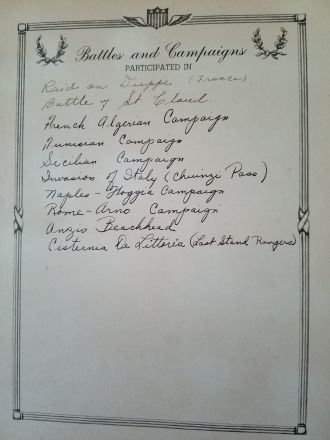 Battles and Campaigns
PARTICIPATED IN
Raid on Dieppe (France)
Battle of St Cloud.
French Algerian Campaign
Tunisian Campaign
Sicilian Campaign
Invasion of Italy (Chiunzi Pass)
Naples - Foggia Campaign
Rome - Arno Campaign
Anzio Beachhead
Cisternia Da Littoria (Last Stand Rangers)